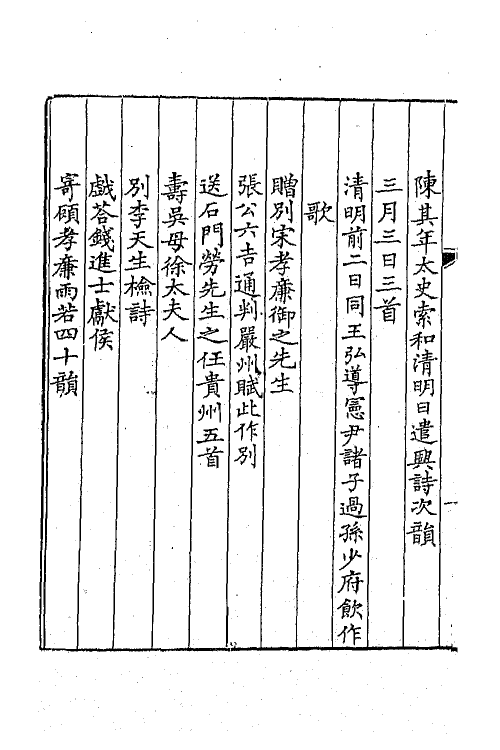 陳其年太史索和清明日遣興詩次韻
三月三日三首
清明前二日同王弘導憲尹諸子過孫少府飲作
歌
贈別宋孝廉御之先生
張公六吉通判嚴州賦此作別
送石門勞先生之任貴州五首
壽吳母徐太夫人
別李天生檢詩
戲荅錢進士獻侯
寄頋孝廉雨若四十韻